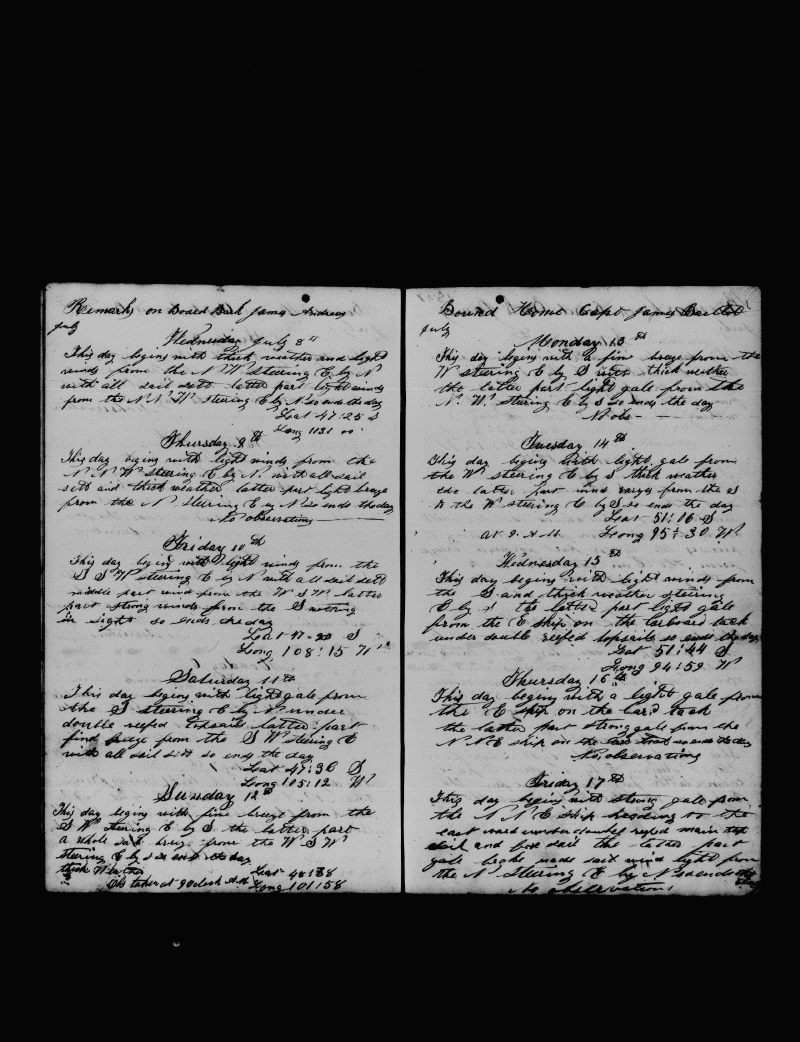 Remarks on Board Bark James Andrews
July
Wednesday July 8"
This day begins with thick weather and light
winds from the N W steering E by N
with all sail sett latter part light winds
from the N N W steering E by N so ends the day
Lat 47:25 S
Long 1131 00
Thursday 9th
This day begins with light winds from the
N N W steering E by N. with all sail
sett and thick weather latter part light breeze
from the N Steering E by N so ends the day
No observations
Friday 10th
This day begins with light winds from the
S S W steering E by N with all sail sett
middle part wind from the W S W latter
part strong winds from the S nothing
in sight so ends the day
Lat 47- S
Long 108:15 W
Saturday 11th
This day begins with light gale from
the S steering E by N under
double reefed topsails latter part
find breeze from the S W steering E
with all sail sett so ends the day
Lat 47:36 S
Long 105:12 W
Sunday 12th
This day begins with fine breeze from the
S W steering E by S the latter part
a whole sail breeze from the W S W
steering E by S so ends the day
thick Weather Lat 48:38
Obs taken at 9 Oclock A.M. Long 101:58
Bound Home Capt James
July
Monday 13th
This day begins with a fine breeze from the
W steering E by S with thick weather
the latter part light gale from the
N. W. steering E by S so ends the day
No obs
Tuesday 14th
This day begins with light gale from
the W steering E by S thick weather
the latter part wind varys from the S
to the W steering E by S so ends the day
Lat 51:16 S
At 9. A.M. Long 95:30 W
Wednesday 15th
This day begins with light winds from
the S and thick weather steering
E by S the latter part light gale
from the E ship on the larboard tack
under double reefed topsails so ends the day
Lat 51:44 S
Long 94:59 W
Thursday 16th
This day begins with a light gale from
the E ship on the lard tack
the latter part strong gale from the
N N E ship on the lard tack so ends the day
No observations
Friday 17th
This day begins with strong gale from
the N N E ship heading to the
east ward under doubel reefed main top
sail and fore sail the latter part
gale broke made sail wind light from
the N Steering E by N so ends the
day
No observations